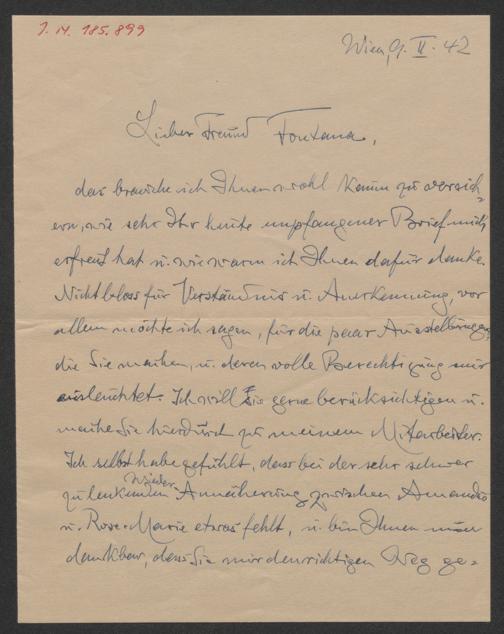 J. N. 185.899
Wien, 9. II. 42
Lieber Freund Fontana,
das brauche ich Ihnen wohl kaum zu versich-
ern, wie sehr Ihr heute empfangener Brief mich
erfreut hat u. wie warm ich Ihnen dafür danke.
Nicht bloss für Verständnis u. Anerkennung, vor
allem möchte ich sagen, für die paar Ausstellungen,
die Sie machen, u. deren volle Berechtigung mir
einleuchtet. Ich will sie gerne berücksichtigen u.
mache Sie hierdurch zu meinem Mitarbeiter.
Ich selbst habe gefühlt, dass bei der sehr schwer
zu lenkenden Wieder-Annäherung zwischen Amando
u. Rose-Marie etwas fehlt, u. bin Ihnen nun
dankbar, dass Sie mir den richtigen Weg ge-